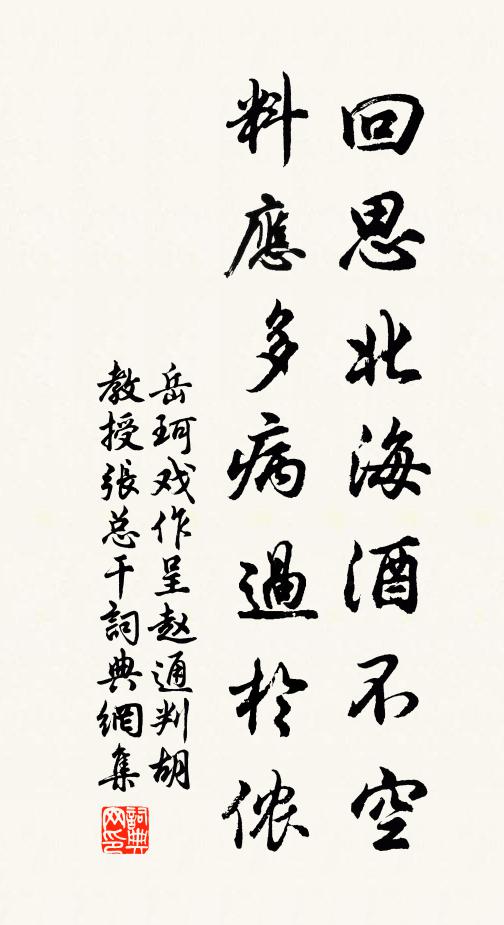 回思北海酒不空
料應多病過於侬
岳珂戏作呈赵通判胡
教授張总干詞典網集
詞典
网印